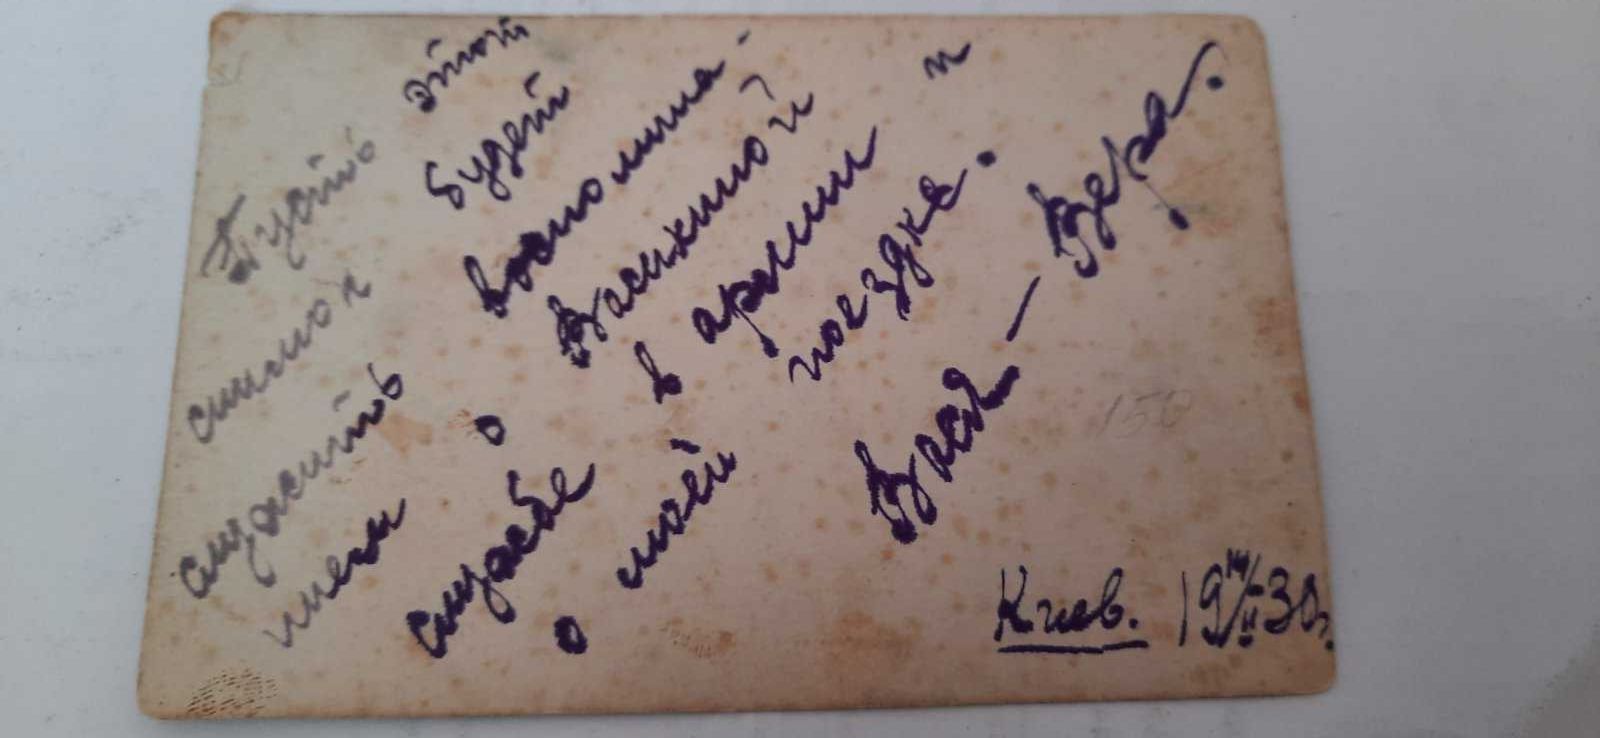 Пусть этот
снимок будет
служить воспомина-
нием о Васькиной
службе в армии и
о моей поездке.
Вася — Вера.
150
Киев. 19 14/II 30г.